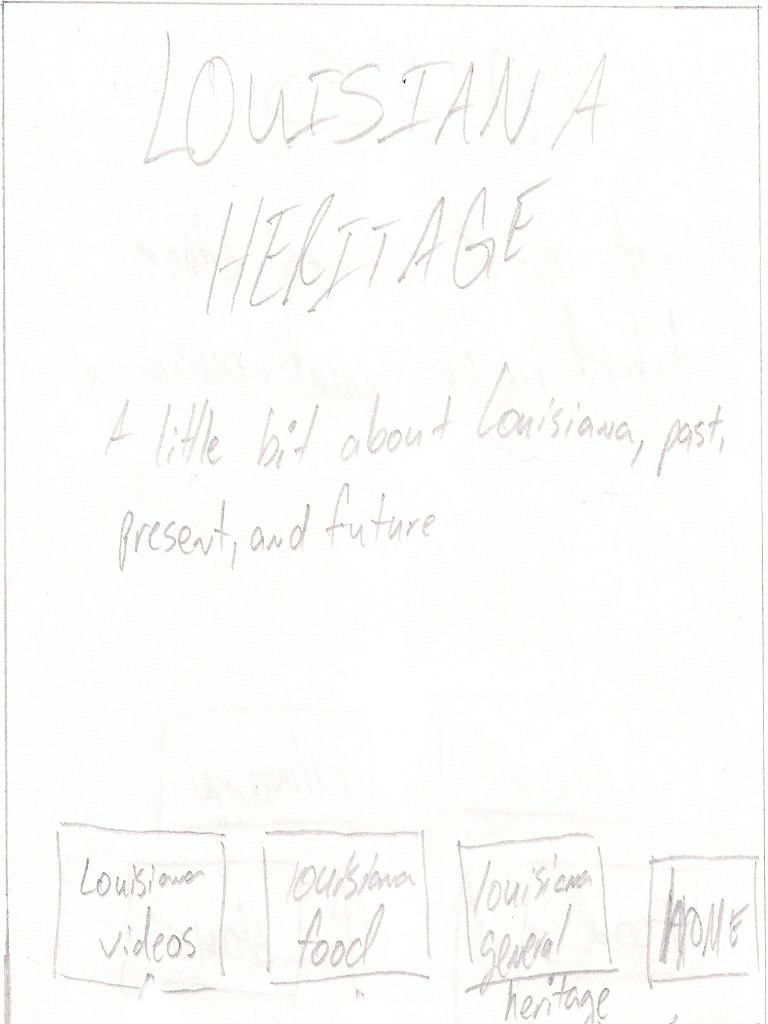 LOUISIANA
HERITAGE
A little bit about Louisiana, past,
present, and future
Louisiana
videos
louisiana
food
louisiana
general
heritage
HOME